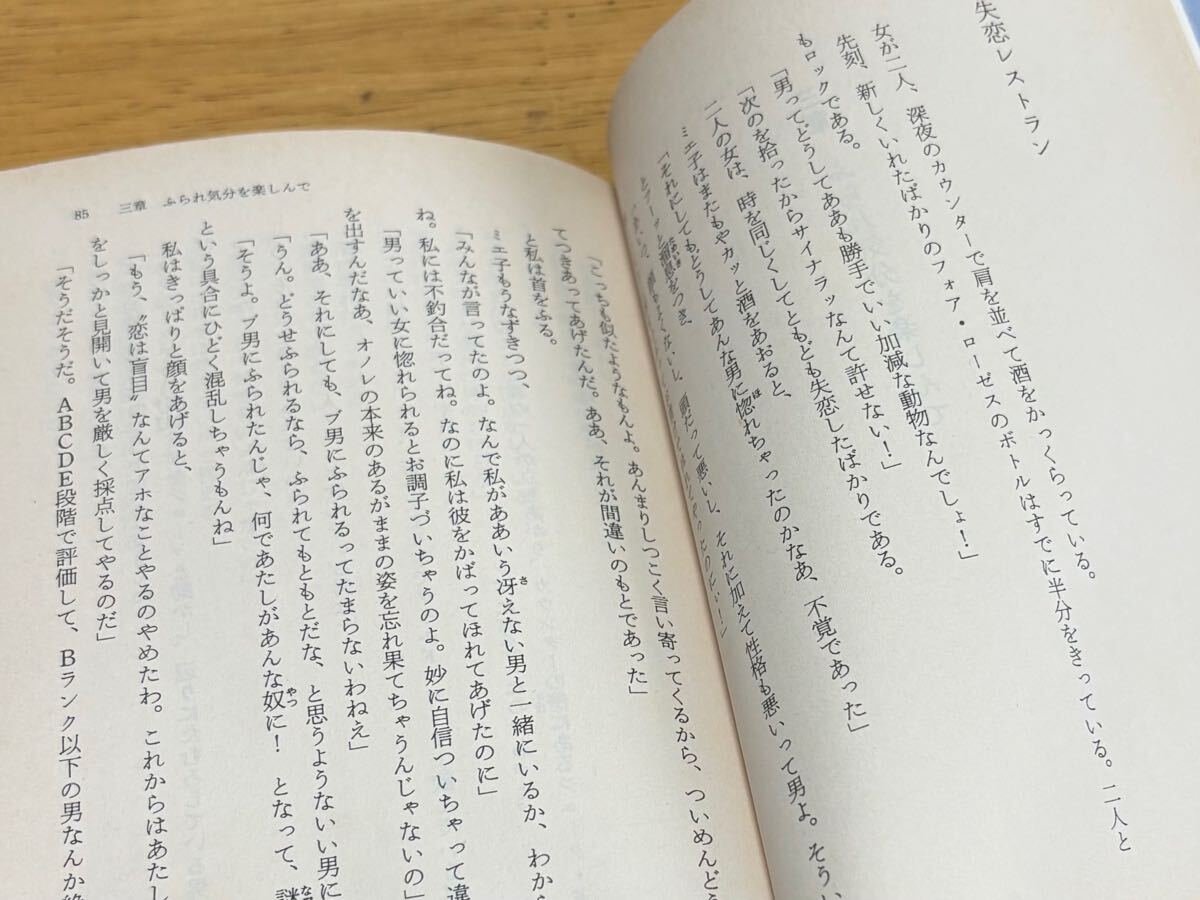 失恋レストラン
女が二人、深夜のカウンターで肩を並べて酒をかっくらっている。
先刻、新しくいれたばかりのフォア・ローゼスのボトルはすでに半分をきっている。二人と
もロックである。
「男ってどうしてああも勝手でいい加減な動物なんでしょ!」
「次のを拾ったからサイナラッなんて許せない!」
二人の女は、時を同じくしてともども失恋したばかりである。
ミエ子はまたもやカッと酒をあおると、
「それにしてもどうしてあんな男に惚れちゃったのかなあ、不覚であった」
とフーッと溜息をつき、
頭だって悪いし、それに加えて性格も悪いって男よ。そうい
「こっちも似たようなもんよ。あんまりしつこく言い寄ってくるから、ついめんどう
てつきあってあげたんだ。ああ、それが間違いのもとであった」
と私は首をふる。
ミエ子もうなずきつつ、
「みんなが言ってたのよ。なんで私がああいう冴えない男と一緒にいるか、わから
ね。私には不釣合だってね。なのに私は彼をかばってほれてあげたのに」
「男っていい女に惚れられるとお調子づいちゃうのよ。妙に自信ついちゃって違
を出すんだなあ、オノレの本来のあるがままの姿を忘れ果てちゃうんじゃないの」
「ああ、それにしても、ブ男にふられるってたまらないわねえ」
「うん。どうせふられるなら、ふられてもともとだな、と思うようないい男に
「そうよ。ブ男にふられたんじゃ、何であたしがあんな奴に! となって、謎
という具合にひどく混乱しちゃうもんね」
私はきっぱりと顔をあげると、
「もう、〝恋は盲目〟なんてアホなことやるのやめたわ。これからはあたし
をしっかと見開いて男を厳しく採点してやるのだ」
「そうだそうだ。ABCDE段階で評価して、Bランク以下の男なんか絶
85 三章 ふられ気分を楽しんで